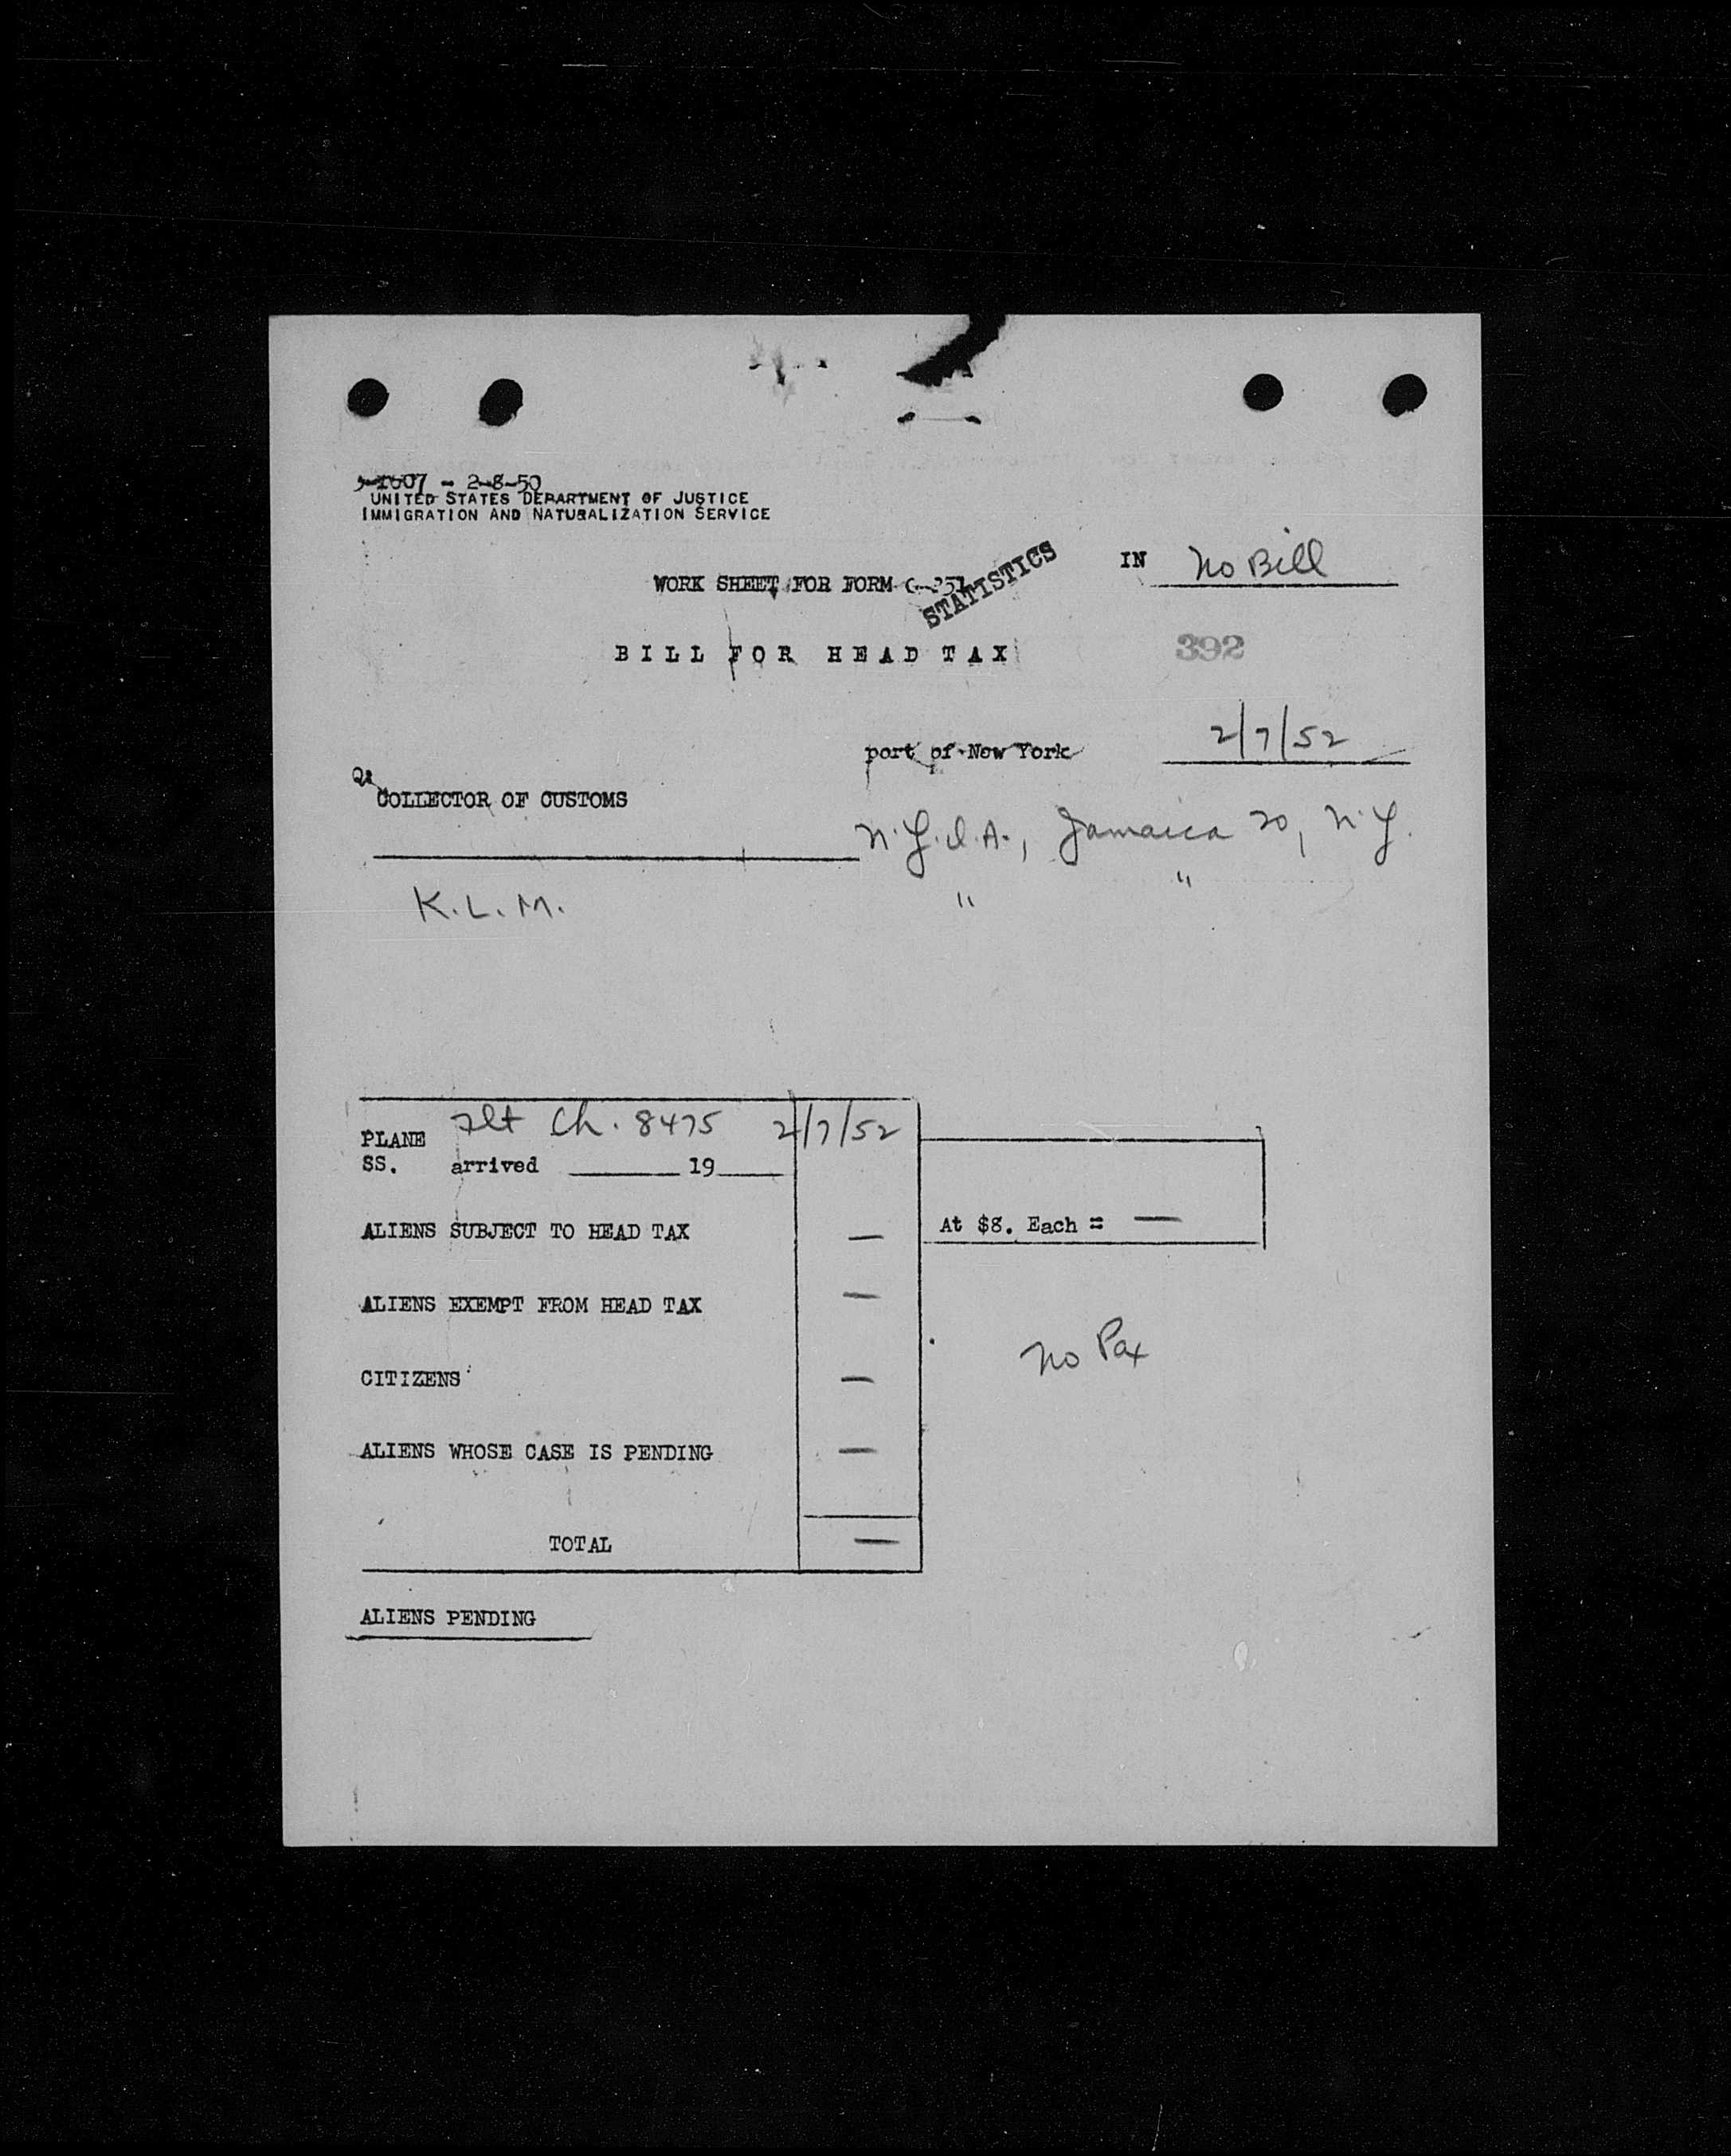 1607 - 2-8-50
UNITED STATES DEPARTMENT OF JUSTICE
IMMIGRATION AND NATURALIZATION SERVICE
IN No Bill
WORK SHEET FOR FORM G-251
STATISTICS
BILL FOR HEAD TAX
392
port of New York 2/7/52
COLLECTOR OF CUSTOMS
N.Y.I.A., Jamaica 20, N.Y.
K.L.M. " "
PLANE Flt Ch. 8475 2/7/52
SS. arrived ________ 19____
ALIENS SUBJECT TO HEAD TAX — At $8. Each = —
ALIENS EXEMPT FROM HEAD TAX —
No Pax
CITIZENS —
ALIENS WHOSE CASE IS PENDING —
TOTAL —
ALIENS PENDING